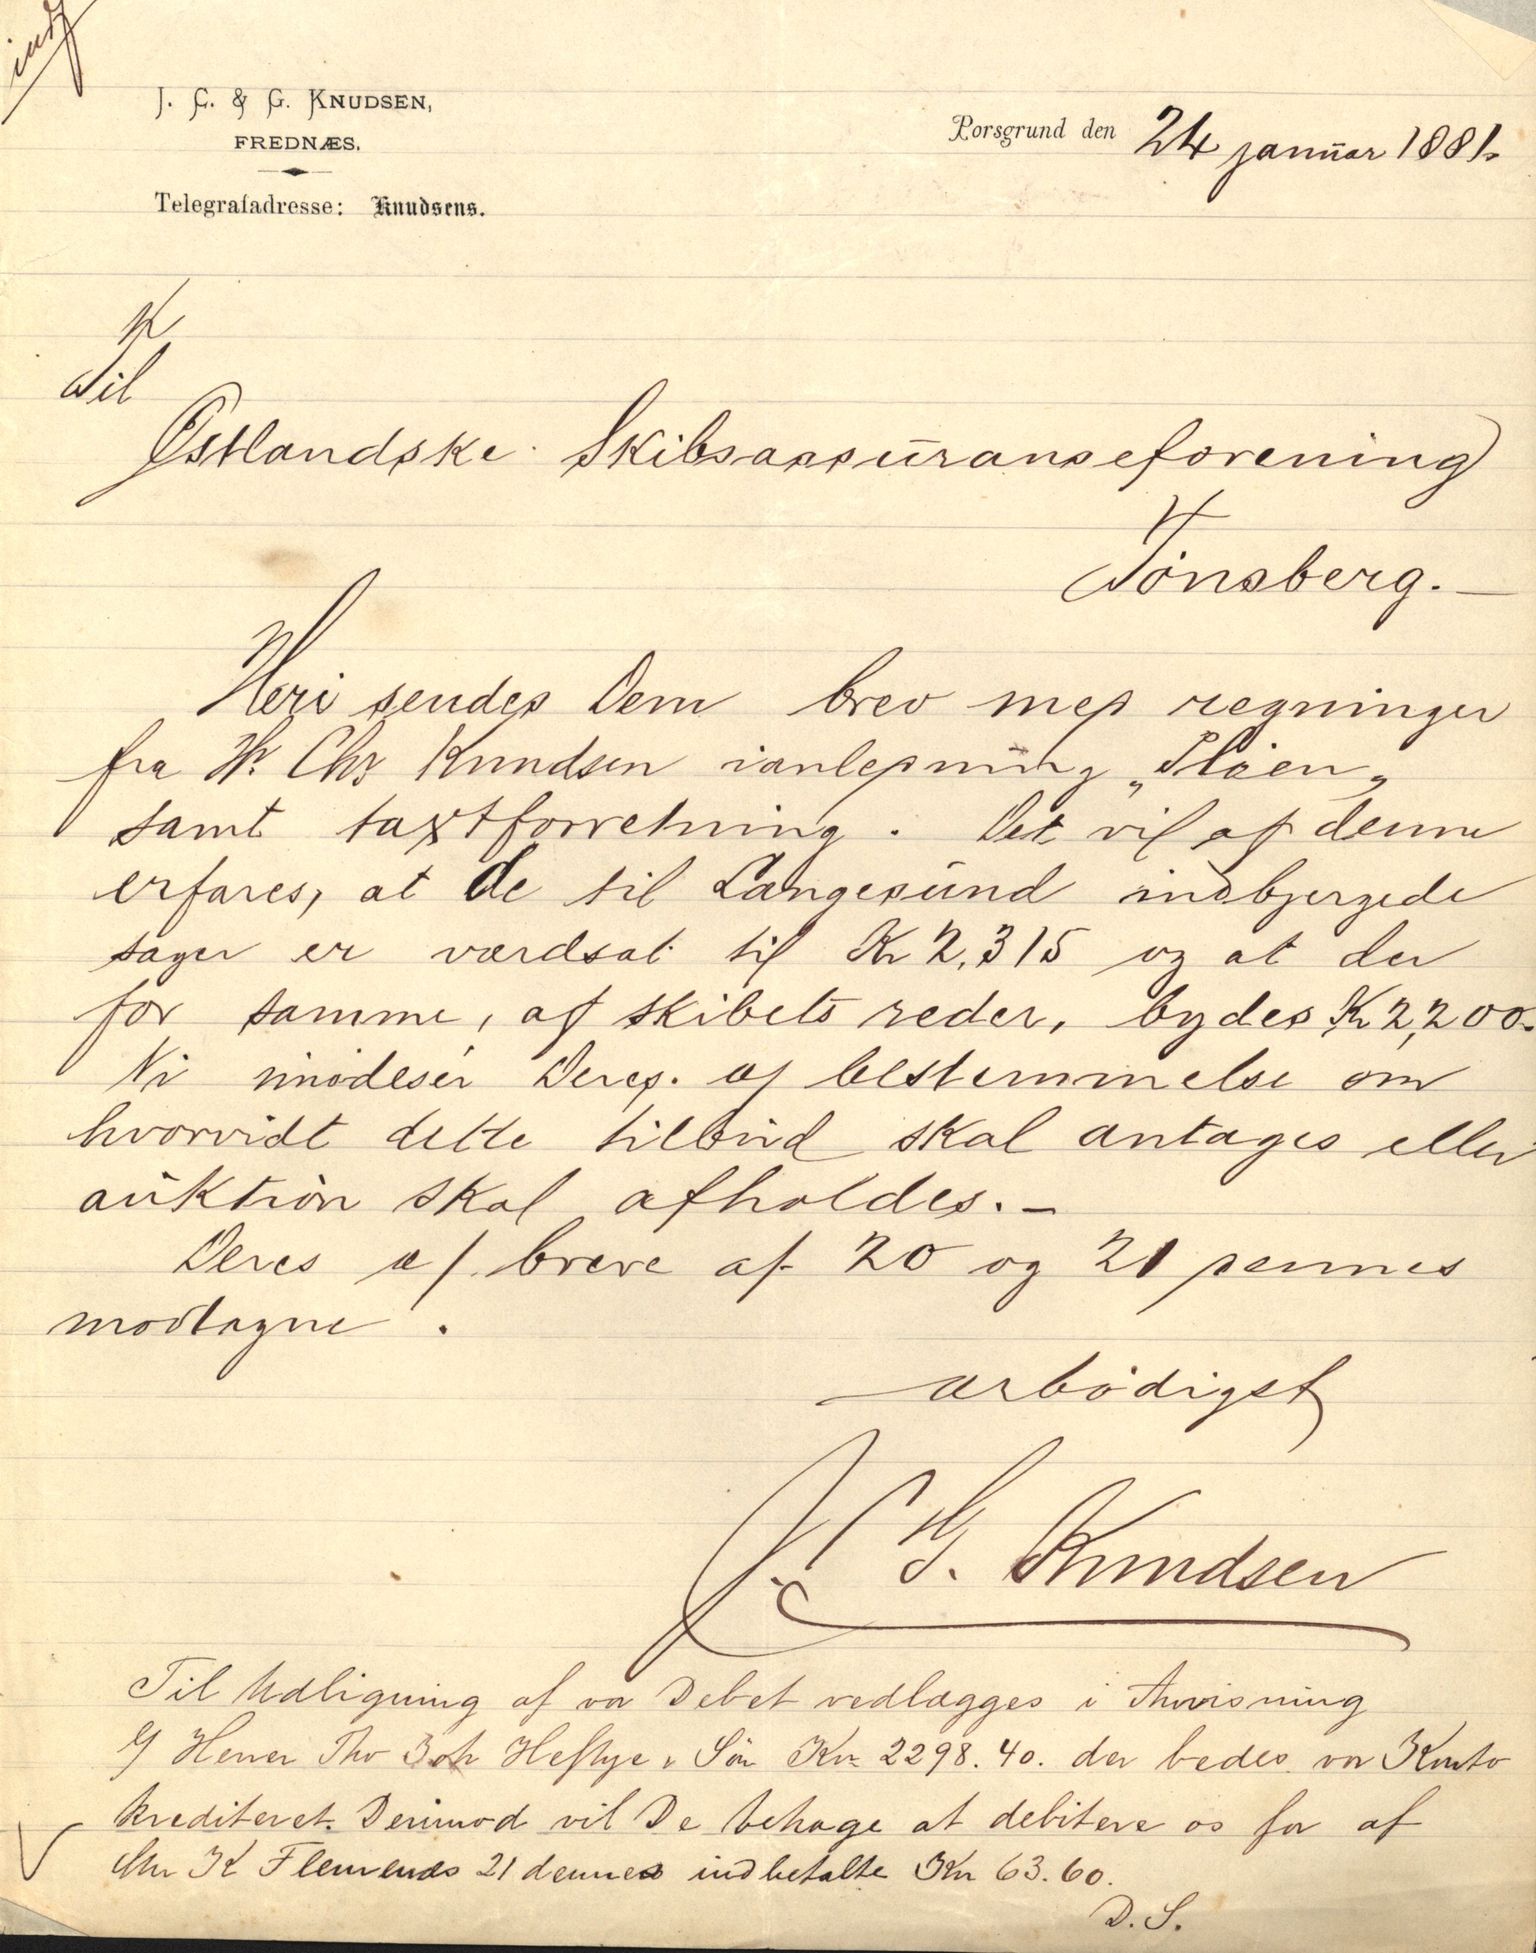 indf
J. C. & G. KNUDSEN,
FREDNÆS.
Telegrafadresse: Knudsens.
Porsgrund den 24 januar 1881.
Til
Østlandske Skibsassuranseforening
Tønsberg.
Heri sendes Dem brev med regninger
fra Hr. Chr Knudsen ianledning „Fløien„
samt taxtforretning. Det vil af denne
erfares, at de til Langesund indbjergede
sager er værdsat til Kr 2,315 og at der
for samme, af skibets reder, bydes Kr 2,200.
Vi imødeser Deres. æ/ bestemmelse om
hvorvidt dette tilbud skal antages eller
auktion skal afholdes.—
Deres æ/ breve af 20 og 21 dennes
modtagne.
ærbødigst
J. C. & G. Knudsen
Til Udligning af vor Debet vedlægges i Anvisning
Herrer Tho Joh Heftye & Søn Kr 2298.40. der bedes vor Konto
krediteret. Derimod vil De behage at debitere os for af
K 21 dennes indbetalte Kr 63.60.
D. S.